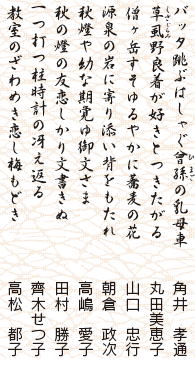 バッタ跳ぶはしゃぐ曾孫の乳母車 角井 孝通
草虱野良着が好きとつきたがる 丸田美恵子
僧ヶ岳すそゆるやかに蕎麦の花 山口 忠行
源泉の岩に寄り添い背をもたれ 朝倉 政次
秋燈や幼な期覚ゆ御文さま 高嶋 愛子
秋の燈の友恋しかり文書きぬ 田村 勝子
一つ打つ柱時計の冴え返る 齊木せつ子
教室のざわめき恋し梅もどき 高松 都子